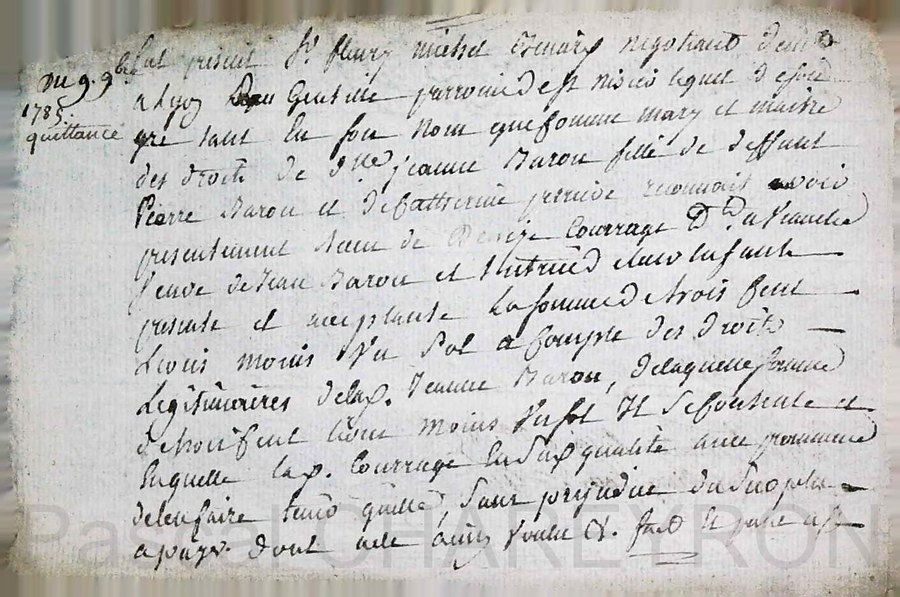 Du 9. 9bre
1785.
quittance
fut présent Sr. fleury michel Thenary négotiant demt
a Lyon paroisse de st nisier lequel de son
gre tant en son nom que comme mary et maitre
des droits de dlle jeanne Baron fille de deffunt
Pierre Baron et de Catherine reconnait avoir
presentement recu de Denise Courrage Dt. a
veuve de Jean Baron et Tutrice de leurs Enfants
presente et acceptante la somme de trois Cent
Livres moins Un Sol a Compte des droits
Legitimaires de lad. Jeanne Baron, de laquelle somme
de trois Cent livres moins Un sol Il Se contente et
En quitte lad. Courrage En Sad. qualité avec promesse
de l'en faire tenir quitte, Sans prejudice du Surplus
a payer. dont acte ainsy Voulu &. fait et passé a
Pascal CHAREYRON